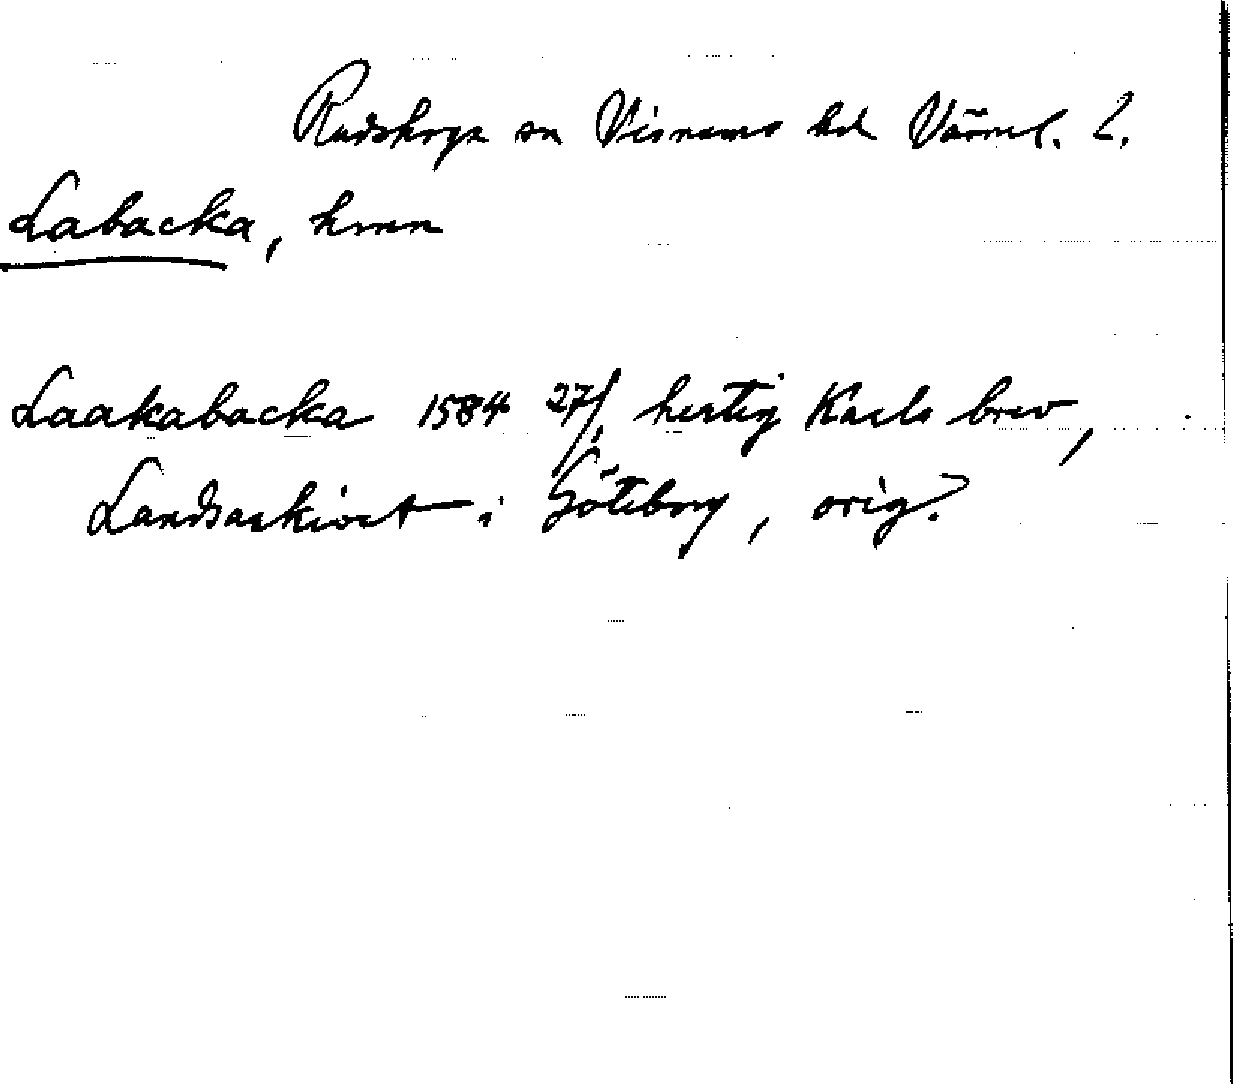 Rudskoga sn Visnums hd Värml. l.
Labacka, hmn
Laakabacka 1584 27/1 hertig Karls brev,
Landsarkivet i Göteborg, orig?